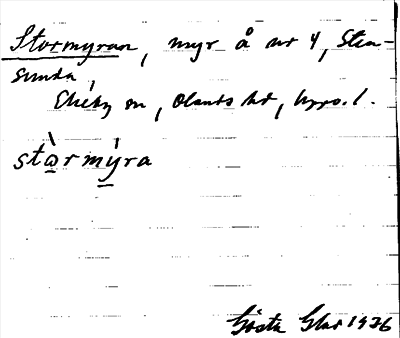 Stormyran, myr å nr 4, Sten-
sunda,
Ekeby sn, Olands hd, Upps. l.
stàrmýra
Gösta Glad 1936